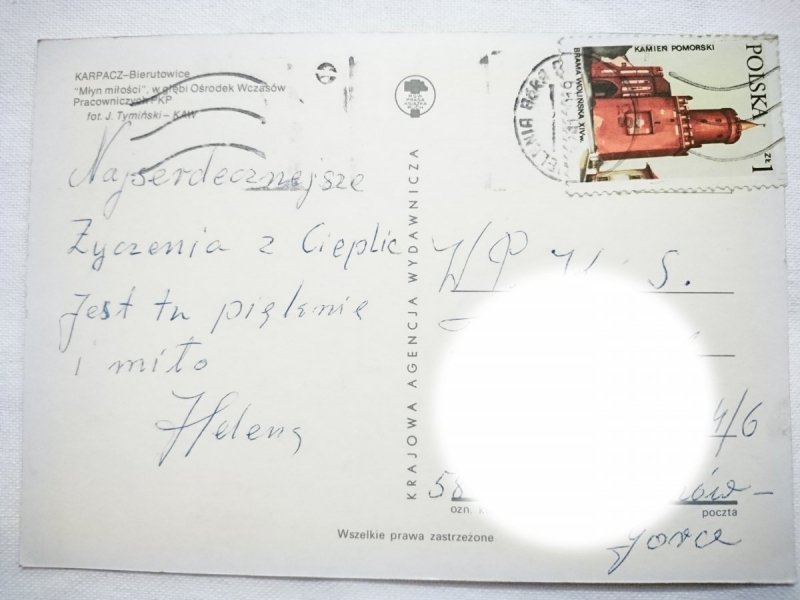 KARPACZ-Bierutowice
"Młyn miłości", w głębi Ośrodek Wczasów
Pracowniczych PKP
fot. J. Tymiński - KAW
Najserdeczniejsze
Życzenia z Cieplic
Jest tu pięknie
i miło
Helena
KRAJOWA AGENCJA WYDAWNICZA
Wszelkie prawa zastrzeżone
KAMIEŃ POMORSKI
BRAMA WOLIŃSKA XIV w.
POLSKA
1 ZŁ
W P. 
S.
4/6
58
ów-
gorce
poczta